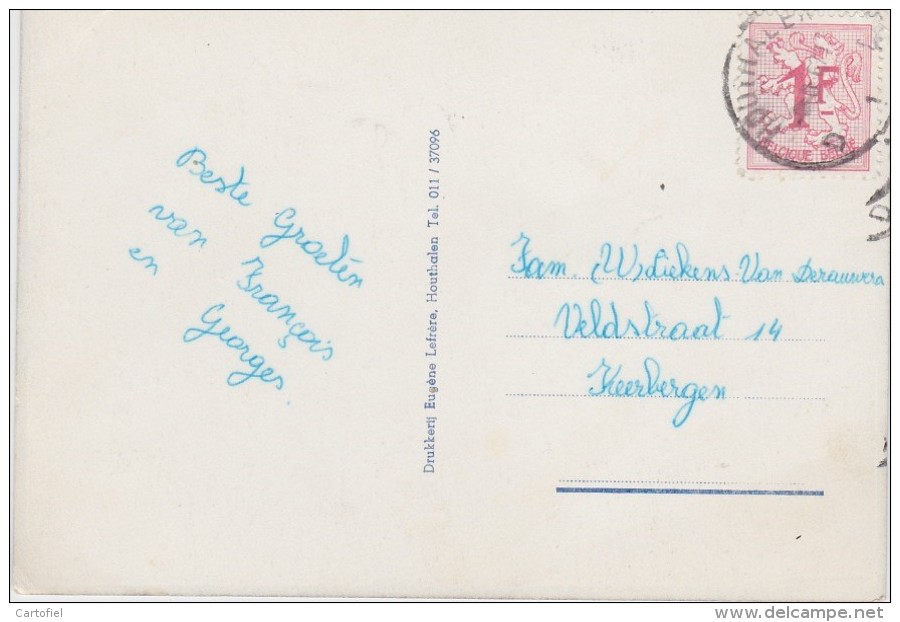 Beste Groeten
van François
en Georges.
Drukkerij Eugène Lefrère, Houthalen Tel. 011 / 37096
HOUTHALEN
1F
BELGIQUE BELGIË
Fam. (W) Liekens Van Derauwera
Veldstraat 14
Keerbergen
Cartofiel
www.delcampe.net